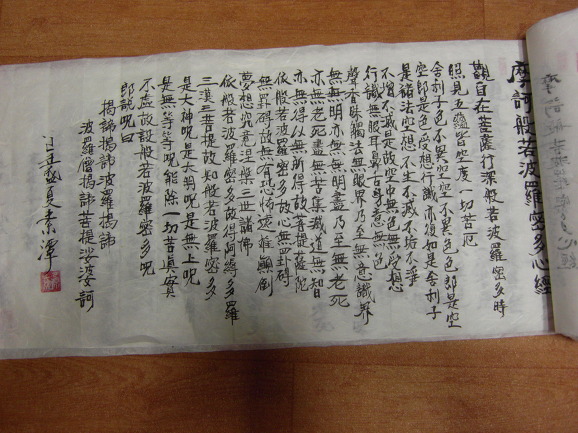 摩訶般若波羅密多心經
觀自在菩薩行深般若波羅密多時
照見五蘊皆空度一切苦厄
舍利子色不異空空不異色色即是空
空即是色受想行識亦復如是舍利子
是諸法空想不生不滅不垢不淨
不增不減是故空中無色無受想
行識無眼耳鼻舌身意無色
聲香味觸法無眼界乃至無意識界
無無明亦無無明盡乃至無老死
亦無老死盡無苦集滅道無智
亦無得以無所得故菩提薩陀
依般若波羅密多故心無罣碍
無罣碍故無有恐怖遠離顛倒
夢想究竟涅槃三世諸佛
依般若波羅密多故得阿耨多羅
三漠三菩提故知般若波羅密多
是大神呪是大明呪是無上呪
是無等等呪能除一切苦眞實
不虛故說般若波羅密多呪
即說呪曰
揭諦揭諦波羅揭諦
波羅僧揭諦菩提娑婆訶
盛夏素潭